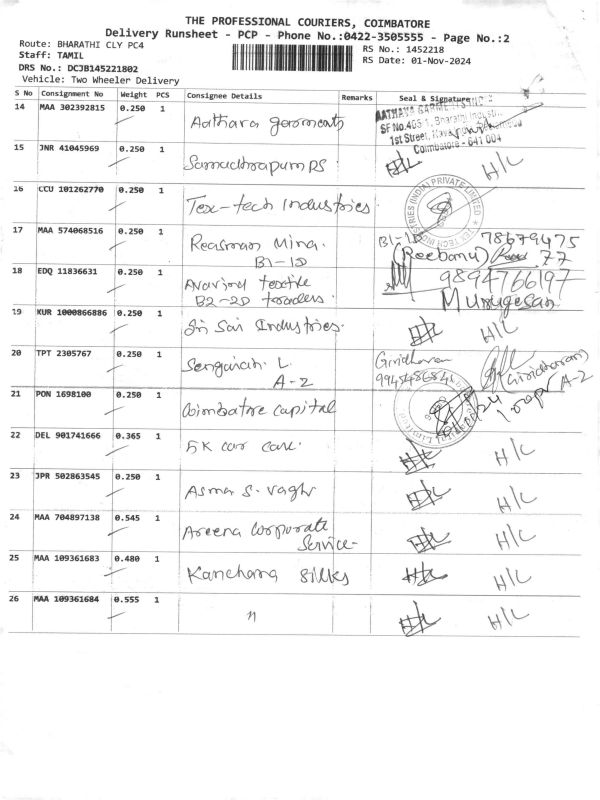 THE PROFESSIONAL COURIERS, COIMBATORE
Delivery Runsheet - PCP - Phone No.:0422-3505555 - Page No.:2
Route: BHARATHI CLY PC4
RS No.: 1452218
Staff: TAMIL
RS Date: 01-Nov-2024
DRS No.: DCJB145221802
Vehicle: Two Wheeler Delivery
S No Consignment No Weight PCS Consignee Details Remarks Seal & Signature
14 MAA 302392815 0.250 1 Aathava garments
AATHAVA GARMENTS
SF No.403-1, Bharathi
1st Street,
Coimbatore - 641 004
15 JNR 41045969 0.250 1 Samuthrapum PS H/L
16 CCU 101262770 0.250 1 Tex-tech Industries.
INDUSTRIES (INDIA) PRIVATE LIMITED
17 MAA 574068516 0.250 1 Reasman Mina. B1-1D 78679475
B1-1D (Reebanu) 77
18 EDQ 11836631 0.250 1 Aravind textile 9894766197
B2-2D traders. Murugesan
19 KUR 1000866886 0.250 1 Sri Sai Industries. H/L
20 TPT 2305767 0.250 1 L. Giridharan (Giridharan)
A-2 A-2
21 PON 1698100 0.250 1 Coimbatore capital
Limited
22 DEL 901741666 0.365 1 5K car care. H/L
23 JPR 502863545 0.250 1 Asma S. H/L
24 MAA 704897138 0.545 1 Areena Corporate H/L
Service-
25 MAA 109361683 0.480 1 Kanchana Silks H/L
26 MAA 109361684 0.555 1 " H/L